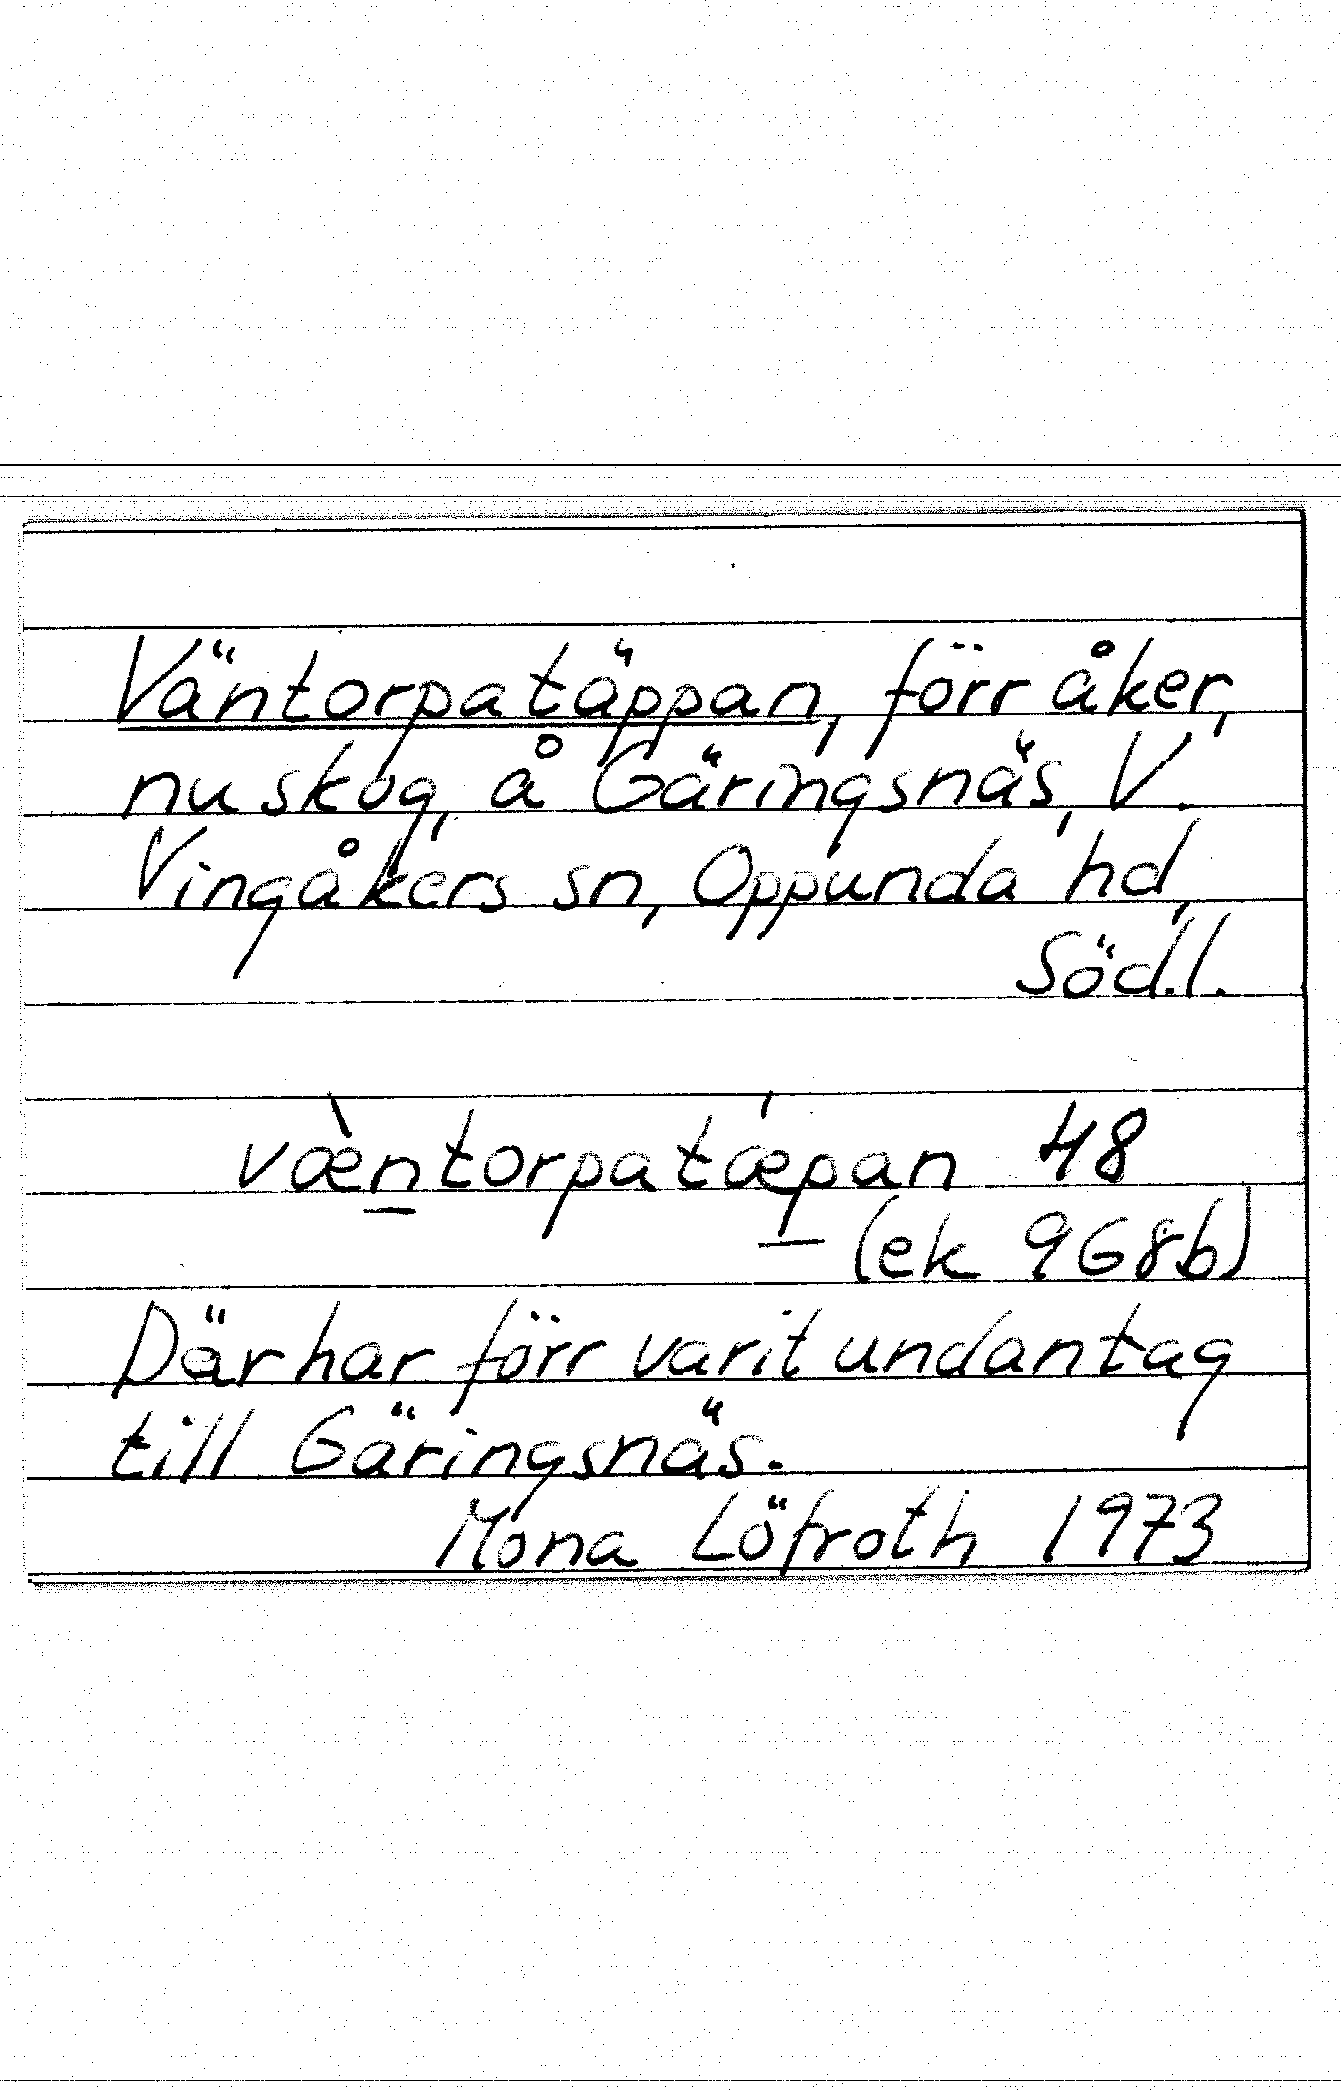 Väntorpatäppan, förr åker,
nu skog, å Gäringsnäs, V.
Vingåkers sn, Oppunda hd,
Söd.l.
væ̀n̲torpatǽp̲an 48
(ek 968b)
Där har förr varit undantag
till Gäringsnäs.
Mona Löfroth 1973